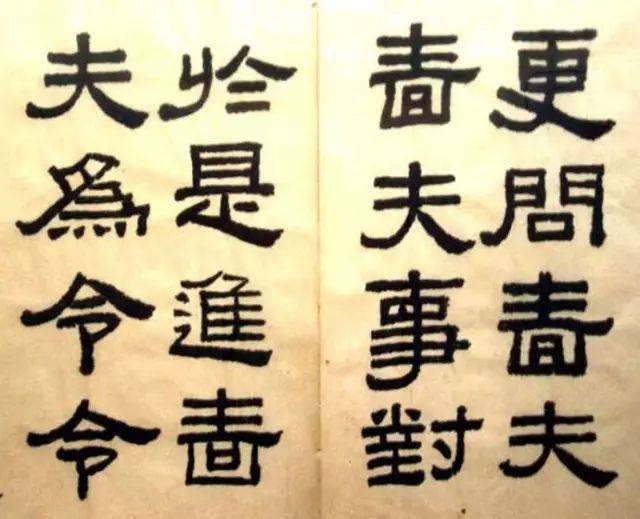 更問嗇夫
嗇夫事對
於是進嗇
夫為令令